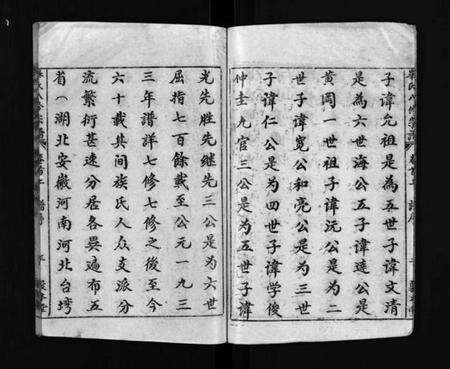 子諱允祖是為五世子諱文清
是為六世海公五子諱遠公是
黃岡一世祖子諱沅公是為二
世子諱寬公和亮公是為三世
子諱仁公是為四世子諱學俊
仲圭九官三公是為五世子諱
光先胜先继先三公是為六世
屈指七百餘載至公元一九三
三年譜詳七修七修之後至今
六十載其间族氏人众支派分
流繁衍甚速分居各異遍布五
省（湖北安徽河南河北台灣